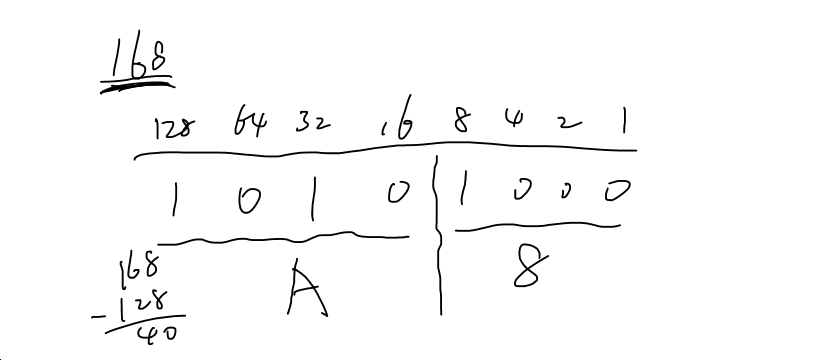 168
128 64 32 16 8 4 2 1
1 0 1 0 1 0 0 0
A 8
168
-128
40